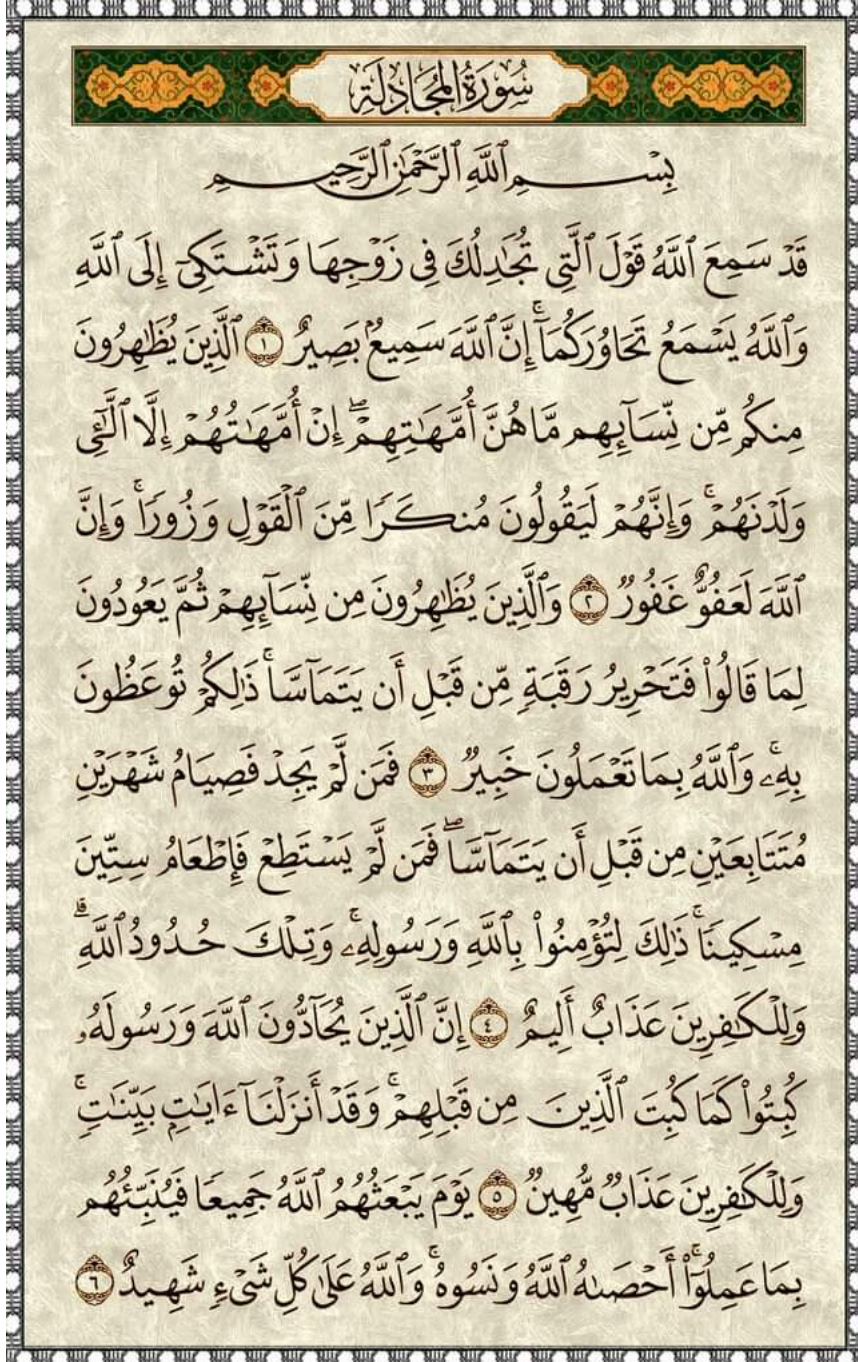 سُورَةُ المُجَادلَةِ
بِسۡمِ ٱللَّهِ ٱلرَّحۡمَٰنِ ٱلرَّحِيمِ
قَدۡ سَمِعَ ٱللَّهُ قَوۡلَ ٱلَّتِي تُجَٰدِلُكَ فِي زَوۡجِهَا وَتَشۡتَكِيٓ إِلَى ٱللَّهِ
وَٱللَّهُ يَسۡمَعُ تَحَاوُرَكُمَآۚ إِنَّ ٱللَّهَ سَمِيعُۢ بَصِيرٌ ١ ٱلَّذِينَ يُظَٰهِرُونَ
مِنكُم مِّن نِّسَآئِهِم مَّا هُنَّ أُمَّهَٰتِهِمۡۖ إِنۡ أُمَّهَٰتُهُمۡ إِلَّا ٱلَّٰٓـِٔي
وَلَدۡنَهُمۡۚ وَإِنَّهُمۡ لَيَقُولُونَ مُنكَرٗا مِّنَ ٱلۡقَوۡلِ وَزُورٗاۚ وَإِنَّ
ٱللَّهَ لَعَفُوٌّ غَفُورٞ ٢ وَٱلَّذِينَ يُظَٰهِرُونَ مِن نِّسَآئِهِمۡ ثُمَّ يَعُودُونَ
لِمَا قَالُواْ فَتَحۡرِيرُ رَقَبَةٖ مِّن قَبۡلِ أَن يَتَمَآسَّاۚ ذَٰلِكُمۡ تُوعَظُونَ
بِهِۦۚ وَٱللَّهُ بِمَا تَعۡمَلُونَ خَبِيرٞ ٣ فَمَن لَّمۡ يَجِدۡ فَصِيَامُ شَهۡرَيۡنِ
مُتَتَابِعَيۡنِ مِن قَبۡلِ أَن يَتَمَآسَّاۖ فَمَن لَّمۡ يَسۡتَطِعۡ فَإِطۡعَامُ سِتِّينَ
مِسۡكِينٗاۚ ذَٰلِكَ لِتُؤۡمِنُواْ بِٱللَّهِ وَرَسُولِهِۦۚ وَتِلۡكَ حُدُودُ ٱللَّهِۗ
وَلِلۡكَٰفِرِينَ عَذَابٌ أَلِيمٌ ٤ إِنَّ ٱلَّذِينَ يُحَآدُّونَ ٱللَّهَ وَرَسُولَهُۥ
كُبِتُواْ كَمَا كُبِتَ ٱلَّذِينَ مِن قَبۡلِهِمۡۚ وَقَدۡ أَنزَلۡنَآ ءَايَٰتِۭ بَيِّنَٰتٖۚ
وَلِلۡكَٰفِرِينَ عَذَابٞ مُّهِينٞ ٥ يَوۡمَ يَبۡعَثُهُمُ ٱللَّهُ جَمِيعٗا فَيُنَبِّئُهُم
بِمَا عَمِلُوٓاْۚ أَحۡصَىٰهُ ٱللَّهُ وَنَسُوهُۚ وَٱللَّهُ عَلَىٰ كُلِّ شَيۡءٖ شَهِيدٌ ٦